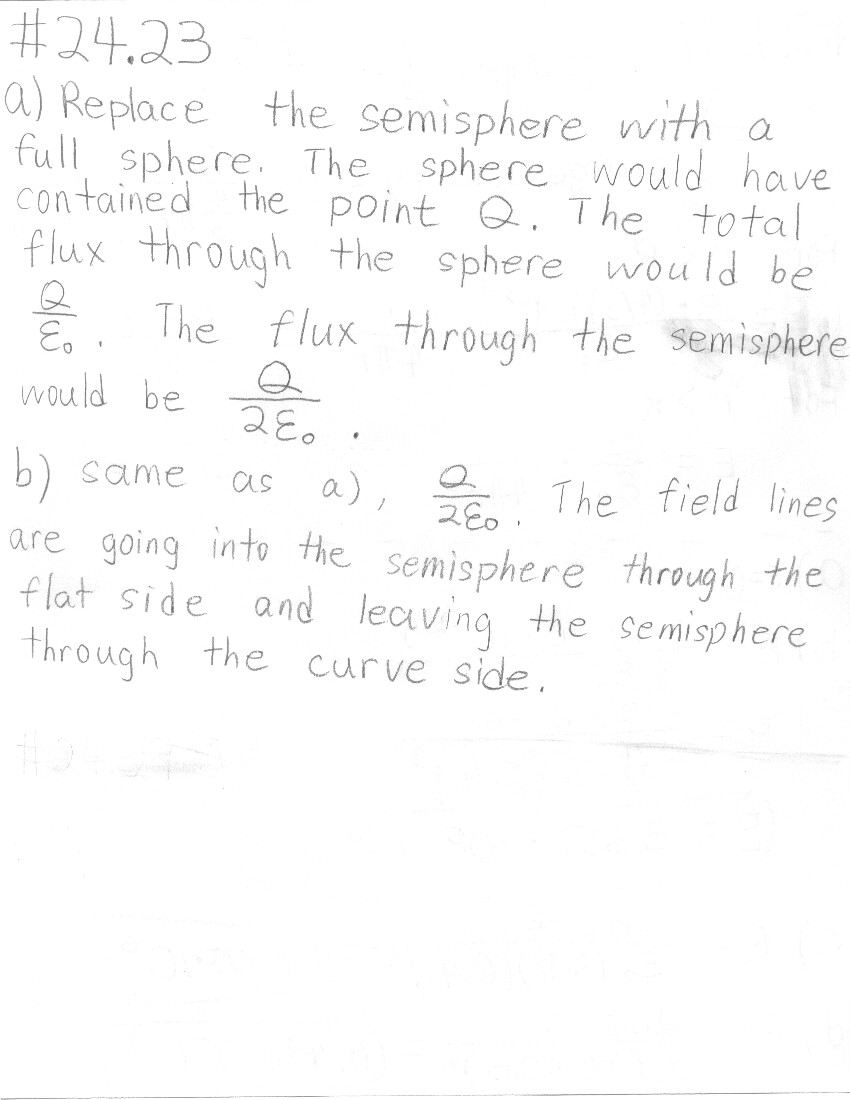 #24.23
a) Replace the semisphere with a
full sphere. The sphere would have
contained the point Q. The total
flux through the sphere would be
Q/ε₀. The flux through the semisphere
would be Q/2ε₀.
b) same as a), Q/2ε₀. The field lines
are going into the semisphere through the
flat side and leaving the semisphere
through the curve side.